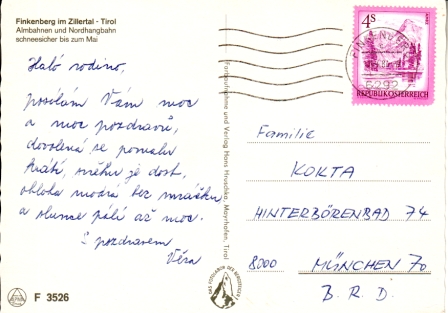 Finkenberg im Zillertal - Tirol
Almbahnen und Nordhangbahn
schneesicher bis zum Mai
Haló rodino,
posílám Vám moc
a moc pozdravů,
dovolená se pomalu
krátí, sněhu je dost,
obloha modrá bez mráčku
a slunce pálí až moc.
S pozdravem
Věra
F 3526
Farbaufnahme und Verlag Hans Hruschka, Mayrhofen, Tirol
4S
REPUBLIK ÖSTERREICH
FINKENBERG
6292
Familie
KOKTA
HINTERBÖRENBAD 74
8000 MÜNCHEN 70
B. R. D.